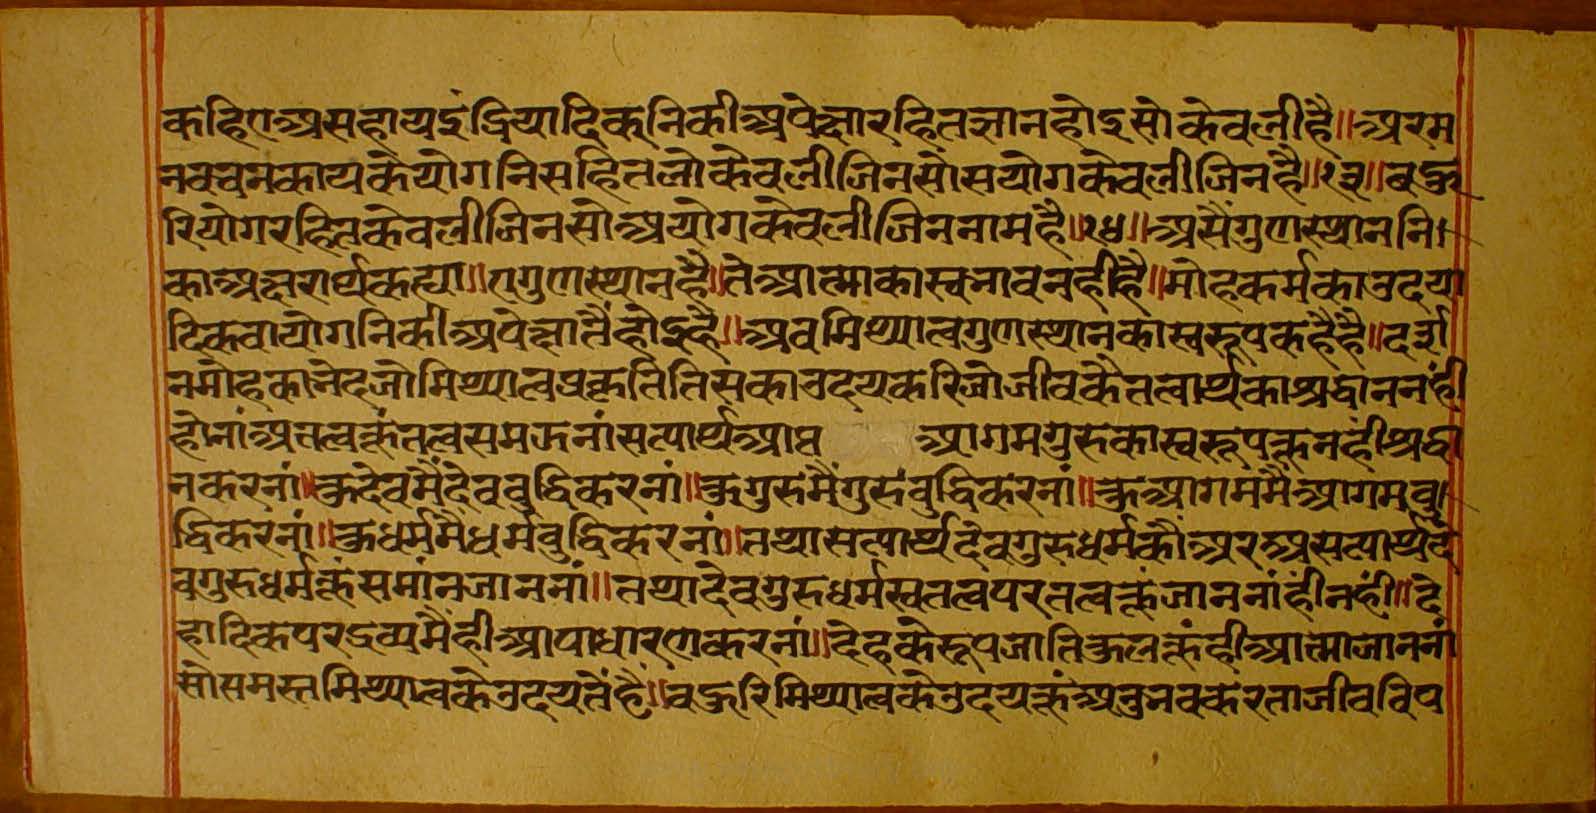 कहिएअसहायइंद्रियादिकनिकीअपेक्षारहितज्ञानहोइसोकेवलीहै॥अरम
नवचनकायकेयोगनिसहितजोकेवलीजिनसोसयोगकेवलीजिनहै॥१३॥बहु
रियोगरहितकेवलीजिनसोअयोगकेवलीजिननामहै॥१४॥असैंगुणस्थाननि।
काअक्षरार्थकह्या॥एगुणस्थानहै॥तेआत्माकास्वभावनहीहै॥मोहकर्मकाउदया
दिकवायोगनिकीअपेक्षातैंहोइहै॥अवमिथ्यात्वगुणस्थानकास्वरूपकहैहै॥दर्श
नमोहकाभेदजोमिथ्यात्वप्रकृतितिसकाउदयकरिजोजीवकैतत्वार्थकाश्रद्धाननंही
होनांअतत्वकूंतत्वसमऊनांसत्यार्थआप्त आगमगुरुकास्वरूपकूनहींश्रद्धा
नकरनां॥कुदेवमैंदेवबुद्धिकरनां॥कुगुरुमैंगुरुबुद्धिकरनां॥कुआगममैंआगमबु।
द्धिकरनां॥कुधर्ममैंधर्मबुद्धिकरनां॥तथासत्यार्थदेवगुरुधर्मकौंअरअसत्यार्थदे
वगुरुधर्मकूंसमांनजाननां॥तथादेवगुरुधर्मस्वतत्वपरतत्वकूंजाननांहीनहीं॥दे
हादिकपरद्रव्यमैंहीआपाधारणकरनां॥देहकेरूपजातिकुलकूंहीआत्माजाननां
सोसमस्तमिथ्यात्वकेउदयतैंहै॥बहुरिमिथ्यात्वकेउदयकूंअनुभवकरताजीवविप